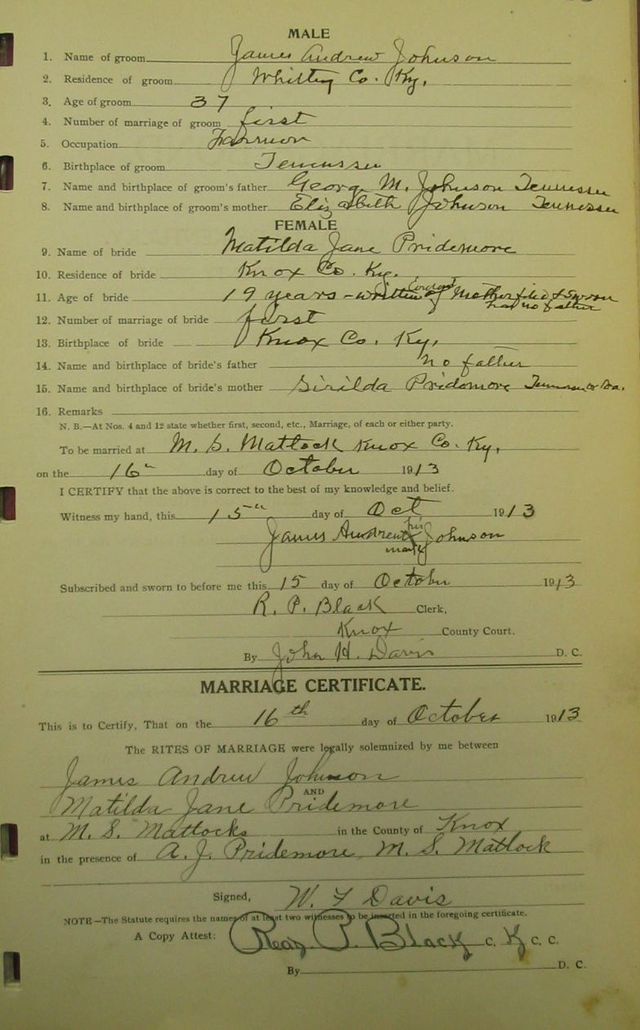 MALE
1. Name of groom James Andrew Johnson
2. Residence of groom Whitley Co. Ky.
3. Age of groom 37
4. Number of marriage of groom first
5. Occupation Farmer
6. Birthplace of groom Tennessee
7. Name and birthplace of groom's father George M. Johnson Tennessee
8. Name and birthplace of groom's mother Elizabeth Johnson Tennessee
FEMALE
9. Name of bride Matilda Jane Pridemore
10. Residence of bride Knox Co. Ky.
11. Age of bride 19 years - written consent of Mother filed & sworn has no father
12. Number of marriage of bride first
13. Birthplace of bride Knox Co. Ky.
14. Name and birthplace of bride's father no father
15. Name and birthplace of bride's mother Pridemore
16. Remarks
N. B.—At Nos. 4 and 12 state whether first, second, etc., Marriage, of each or either party.
To be married at M. S. Matlock Knox Co. Ky,
on the 16 day of October 1913
I CERTIFY that the above is correct to the best of my knowledge and belief.
Witness my hand, this 15th day of Oct 1913
James Andrew his mark Johnson
Subscribed and sworn to before me this 15 day of October 1913
R. P. Black Clerk,
Knox County Court.
By John H. Davis D. C.
MARRIAGE CERTIFICATE.
This is to Certify, That on the 16th day of October 1913
The RITES OF MARRIAGE were legally solemnized by me between
James Andrew Johnson
AND
Matilda Jane Pridemore
at M. S. Matlocks in the County of Knox
in the presence of A. J. Pridemore, M. S. Matlock
Signed, W. F Davis
NOTE—The Statute requires the names of at least two witnesses to be inserted in the foregoing certificate.
A Copy Attest: P. Black C. K C. C.
By D. C.